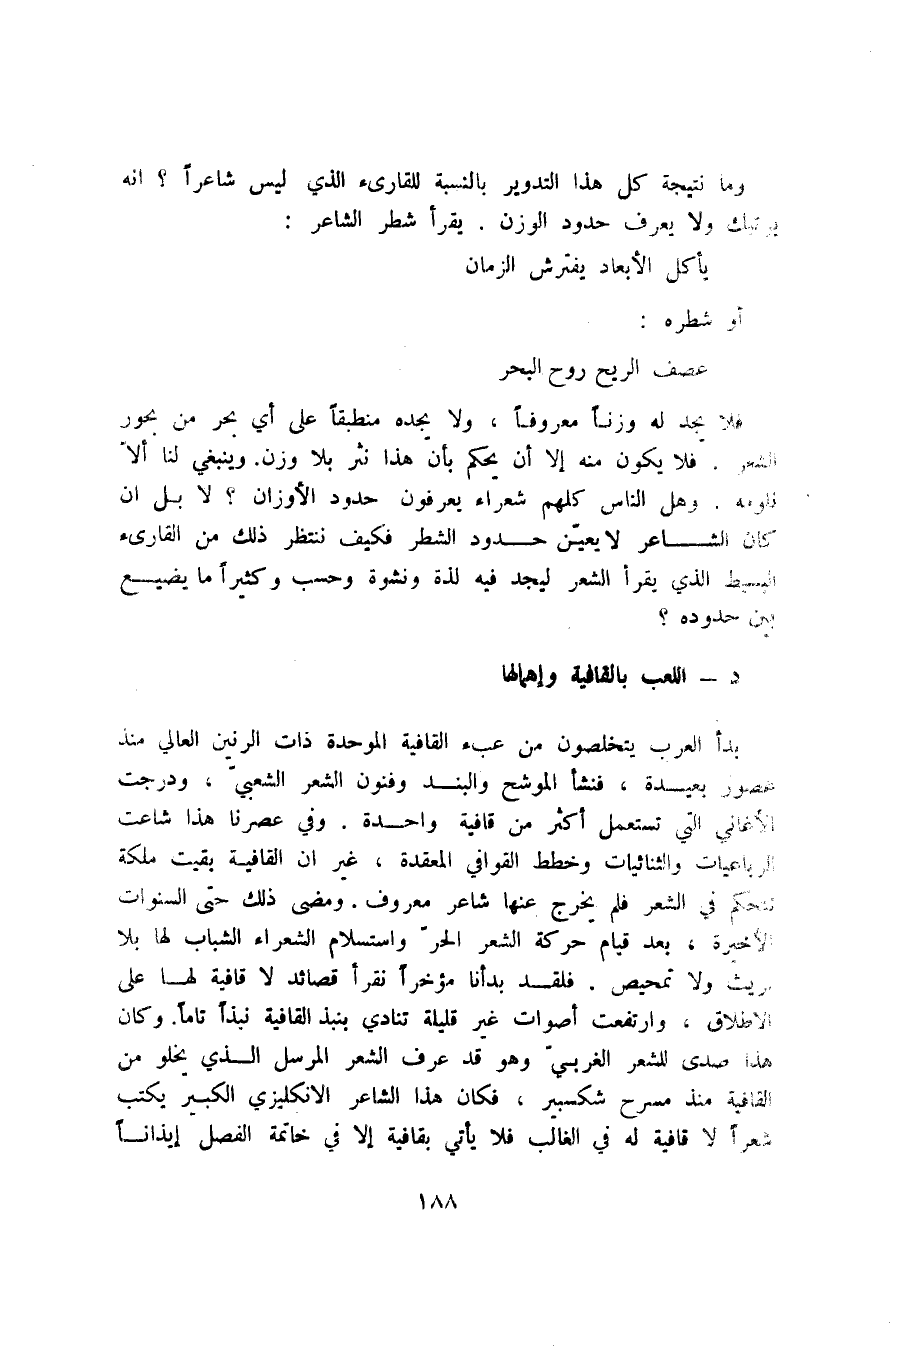 وما نتيجة كل هذا التدوير بالنسبة للقارىء الذي ليس شاعراً ؟ انه
يرتبك ولا يعرف حدود الوزن . يقرأ شطر الشاعر :
يأكل الأبعاد يفترش الزمان
أو شطره :
عصف الريح روح البحر
فلا يجد له وزنـاً معروفـاً ، ولا يجده منطبقاً على أي بحر من بحور
الشعر . فلا يكون منه إلا أن يحكم بأن هذا نثر بلا وزن. وينبغي لنا ألاّ
نلومه . وهل الناس كلهم شعراء يعرفون حدود الأوزان ؟ لا بـل ان
كان الشــــاعر لا يعيّن حـــدود الشطر فكيف ننتظر ذلك من القارىء
البسيط الذي يقرأ الشعر ليجد فيه لذة ونشوة وحسب وكثيراً ما يضيــع
بين حدوده ؟
د – اللعب بالقافية وإهمالها
بدأ العرب يتخلصون من عبء القافية الموحدة ذات الرنين العالي منذ
عصور بعيــدة ، فنشأ الموشح والبنــد وفنون الشعر الشعبيّ ، ودرجت
الأغاني التي تستعمل أكثر من قافية واحــدة . وفي عصرنا هذا شاعت
الرباعيات والثنائيات وخطط القوافي المعقدة ، غير ان القافيــة بقيت ملكة
تتحكم في الشعر فلم يخرج عنها شاعر معروف. ومضى ذلك حتى السنوات
الأخيرة ، بعد قيام حركة الشعر الحرّ واستسلام الشعراء الشباب لها بلا
ريث ولا تمحيص . فلقــد بدأنا مؤخراً نقرأ قصائد لا قافية لهــا على
الاطلاق ، وارتفعت أصوات غير قليلة تنادي بنبذ القافية نبذاً تاماً. وكان
هذا صدى للشعر الغربيّ وهو قد عرف الشعر المرسل الــذي يخلو من
القافية منذ مسرح شكسبير ، فكان هذا الشاعر الانكليزي الكبير يكتب
شعراً لا قافية له في الغالب فلا يأتي بقافية إلا في خاتمة الفصل إيذانــاً
١٨٨